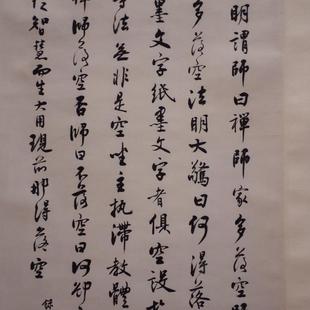 明謂師曰禪師家多落空
多落空法明大驚曰何得落
墨文字紙墨文字者俱空設
等法無非是空坐主執滯教體
禪師落空否師曰不落空曰何卻
從智慧而生大用現前那得落空